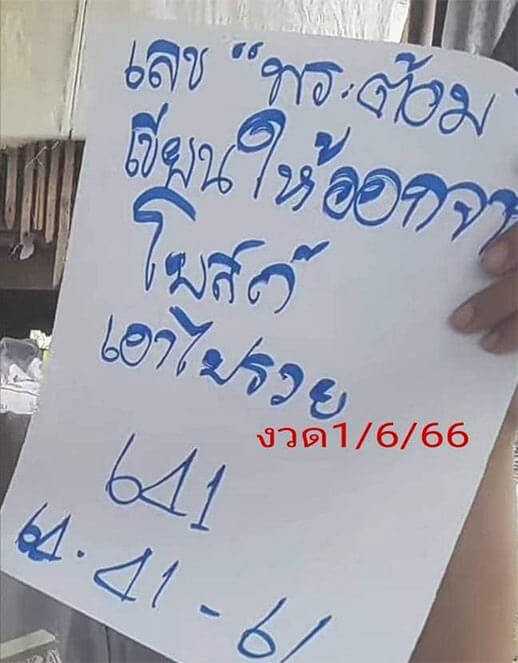 เลข "พระต้อม
เขียนให้ออกจาก
โบสถ์
เอาไปรวย
งวด1/6/66
641
64.41-61